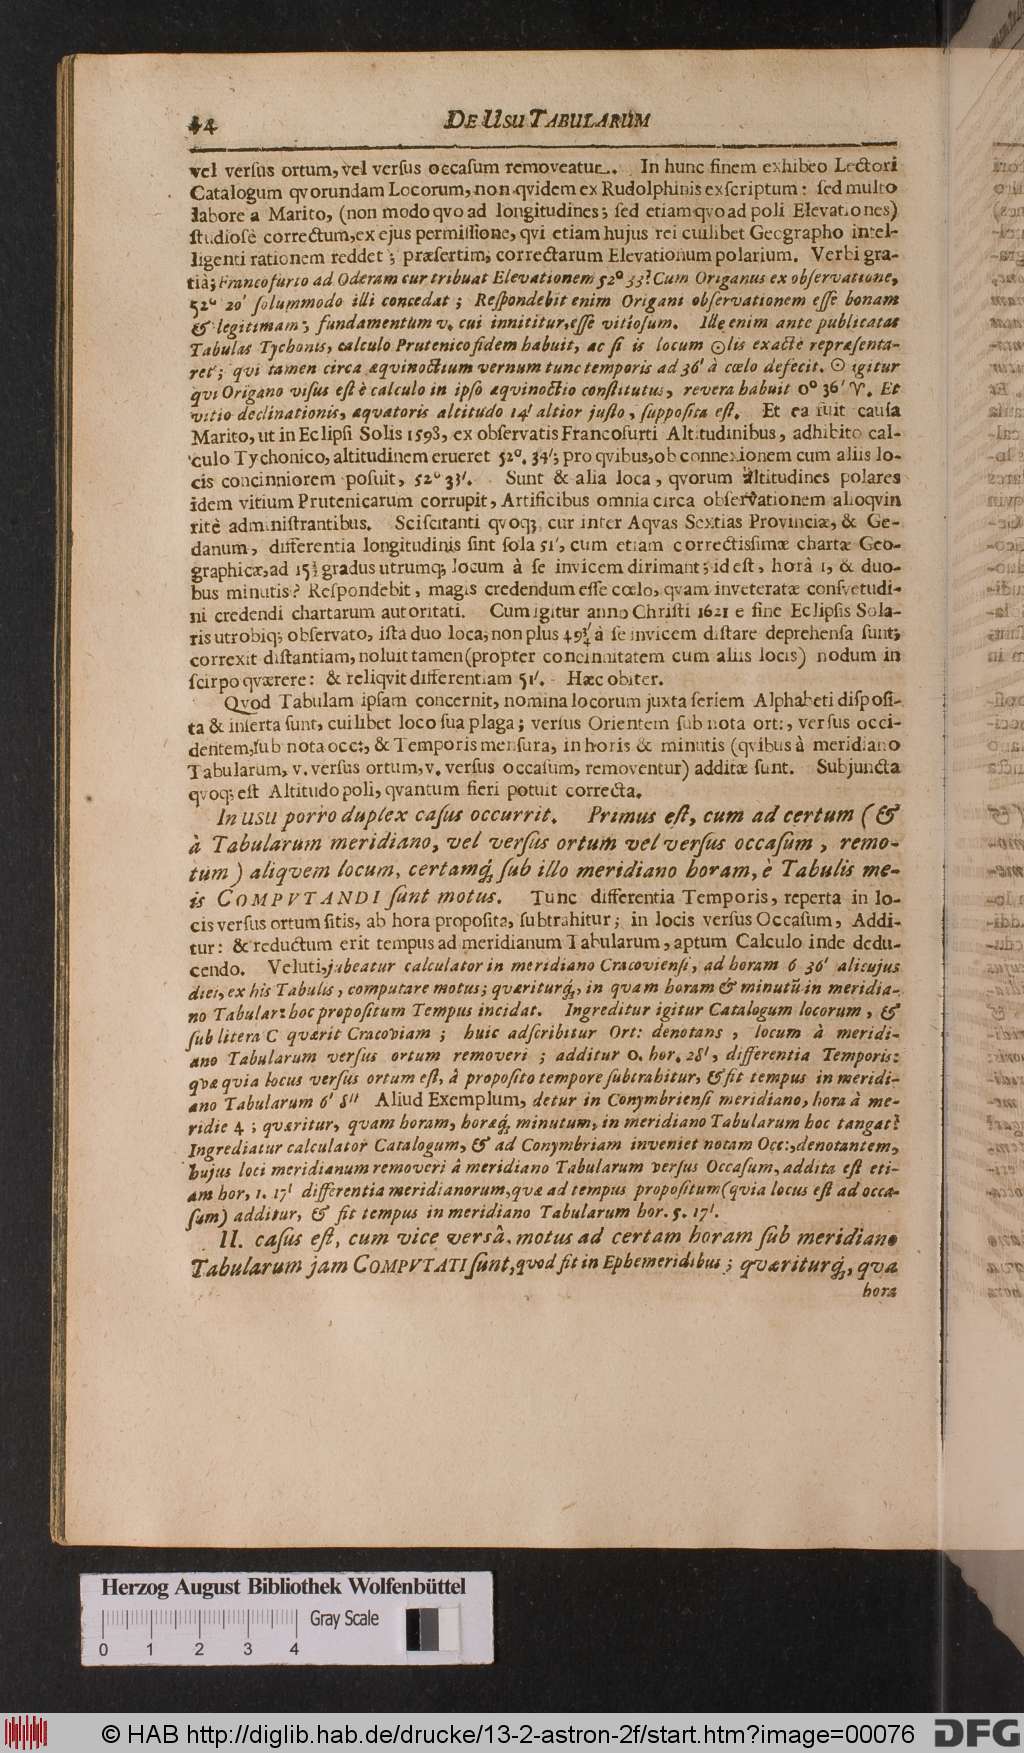 44
DE USU TABULARUM
vel verſus ortum, vel verſus occaſum removeatur. In hunc finem exhibeo Lectori
Catalogum qvorundam Locorum, non qvidem ex Rudolphinis exſcriptum: ſed multo
labore a Marito, (non modo qvo ad longitudines; ſed etiam qvo ad poli Elevationes)
ſtudioſè correctum, ex ejus permiſſione, qvi etiam hujus rei cuilibet Geographo intel-
ligenti rationem reddet; præſertim, correctarum Elevationum polarium. Verbi gra-
tiâ; Francofurto ad Oderam cur tribuat Elevationem 52° 33'? Cum Origanus ex obſervatione,
52° 20' ſolummodo illi concedat; Reſpondebit enim Origani obſervationem eſſe bonam
& legitimam; fundamentum v. cui innititur, eſſe vitioſum. Ille enim ante publicatas
Tabulas Tychonis, calculo Prutenico fidem habuit, ac ſi is locum ☉lis exactè repræſenta-
ret; qui tamen circa æqvinoctium vernum tunc temporis ad 36' à cœlo defecit. ☉ igitur
qvi Origano viſus eſt è calculo in ipſo æqvinoctio conſtitutus, revera habuit 0° 36' ♈. Et
vitio declinationis, æqvatoris altitudo 14' altior juſto, ſuppoſita eſt. Et ea fuit cauſa
Marito, ut in Eclipſi Solis 1598, ex obſervatis Francofurti Altitudinibus, adhibito cal-
culo Tychonico, altitudinem erueret 52°. 34'; pro qvibus, ob connexionem cum aliis lo-
cis concinniorem poſuit, 52° 33'. Sunt & alia loca, qvorum altitudines polares
idem vitium Prutenicarum corrupit, Artificibus omnia circa obſervationem alioqvin
ritè adminiſtrantibus. Sciſcitanti qvoqꝫ cur inter Aqvas Sextias Provinciæ, & Ge-
danum, differentia longitudinis ſint ſola 51', cum etiam correctiſſimæ chartæ Geo-
graphicæ, ad 15½ gradus utrumqꝫ locum à ſe invicem dirimant; id eſt, horâ 1, & duo-
bus minutis? Reſpondebit, magis credendum eſſe cœlo, qvam inveteratæ conſvetudi-
ni credendi chartarum autoritati. Cum igitur anno Chriſti 1621 e fine Eclipſis Sola-
ris utrobiqꝫ obſervato, iſta duo loca, non plus 49¾' à ſe invicem diſtare deprehenſa ſunt;
correxit diſtantiam, noluit tamen (propter concinnitatem cum aliis locis) nodum in
ſcirpo qværere: & reliqvit differentiam 51'. Hæc obiter.
Qvod Tabulam ipſam concernit, nomina locorum juxta ſeriem Alphabeti diſpoſi-
ta & inſerta ſunt, cuilibet loco ſua plaga; verſus Orientem ſub nota ort:, verſus occi-
dentem, ſub nota occ:, & Temporis menſura, in horis & minutis (qvibus à meridiano
Tabularum, v. verſus ortum, v. verſus occaſum, removentur) additæ ſunt. Subjuncta
qvoqꝫ eſt Altitudo poli, qvantum fieri potuit correcta.
In USU porro duplex caſus occurrit. Primus eſt, cum ad certum (&
à Tabularum meridiano, vel verſus ortum vel verſus occaſum, remo-
tum) aliqvem locum, certamqꝫ ſub illo meridiano horam, è Tabulis me-
is COMPVTANDI ſunt motus. Tunc differentia Temporis, reperta in lo-
cis verſus ortum ſitis, ab hora propoſita, ſubtrahitur; in locis verſus Occaſum, Addi-
tur: & reductum erit tempus ad meridianum Tabularum, aptum Calculo inde dedu-
cendo. Veluti, jubeatur calculator in meridiano Cracovienſi, ad horam 6 36' alicujus
diei, ex his Tabulis, computare motus; qværiturqꝫ, in quam horam & minutū in meridia-
no Tabular: hoc propoſitum Tempus incidat. Ingreditur igitur Catalogum locorum, &
ſub litera C qværit Cracoviam; huic adſcribitur Ort: denotans, locum à meridi-
ano Tabularum verſus ortum removeri; additur 0. hor. 28', differentia Temporis:
qvæ qvia locus verſus ortum eſt, à propoſito tempore ſubtrahitur, & fit tempus in meridi-
ano Tabularum 6' 8'' Aliud Exemplum, detur in Conymbrienſi meridiano, hora à me-
ridie 4; qværitur, quam horam, horæqꝫ minutum, in meridiano Tabularum hoc tangat?
Ingrediatur calculator Catalogum, & ad Conymbriam inveniet notam Occ:, denotantem,
hujus loci meridianum removeri à meridiano Tabularum verſus Occaſum, addita eſt eti-
am hor, 1. 17' differentia meridianorum, quæ ad tempus propoſitum (qvia locus eſt ad occa-
ſum) additur, & fit tempus in meridiano Tabularum hor. 5. 17'.
II. caſus eſt, cum vice verſâ, motus ad certam horam ſub meridiano
Tabularum jam COMPVTATI ſunt, quod fit in Ephemeridibus; qværiturqꝫ, qva
hora
Herzog August Bibliothek Wolfenbüttel
Gray Scale
0 1 2 3 4
© HAB http://diglib.hab.de/drucke/13-2-astron-2f/start.htm?image=00076
DFG